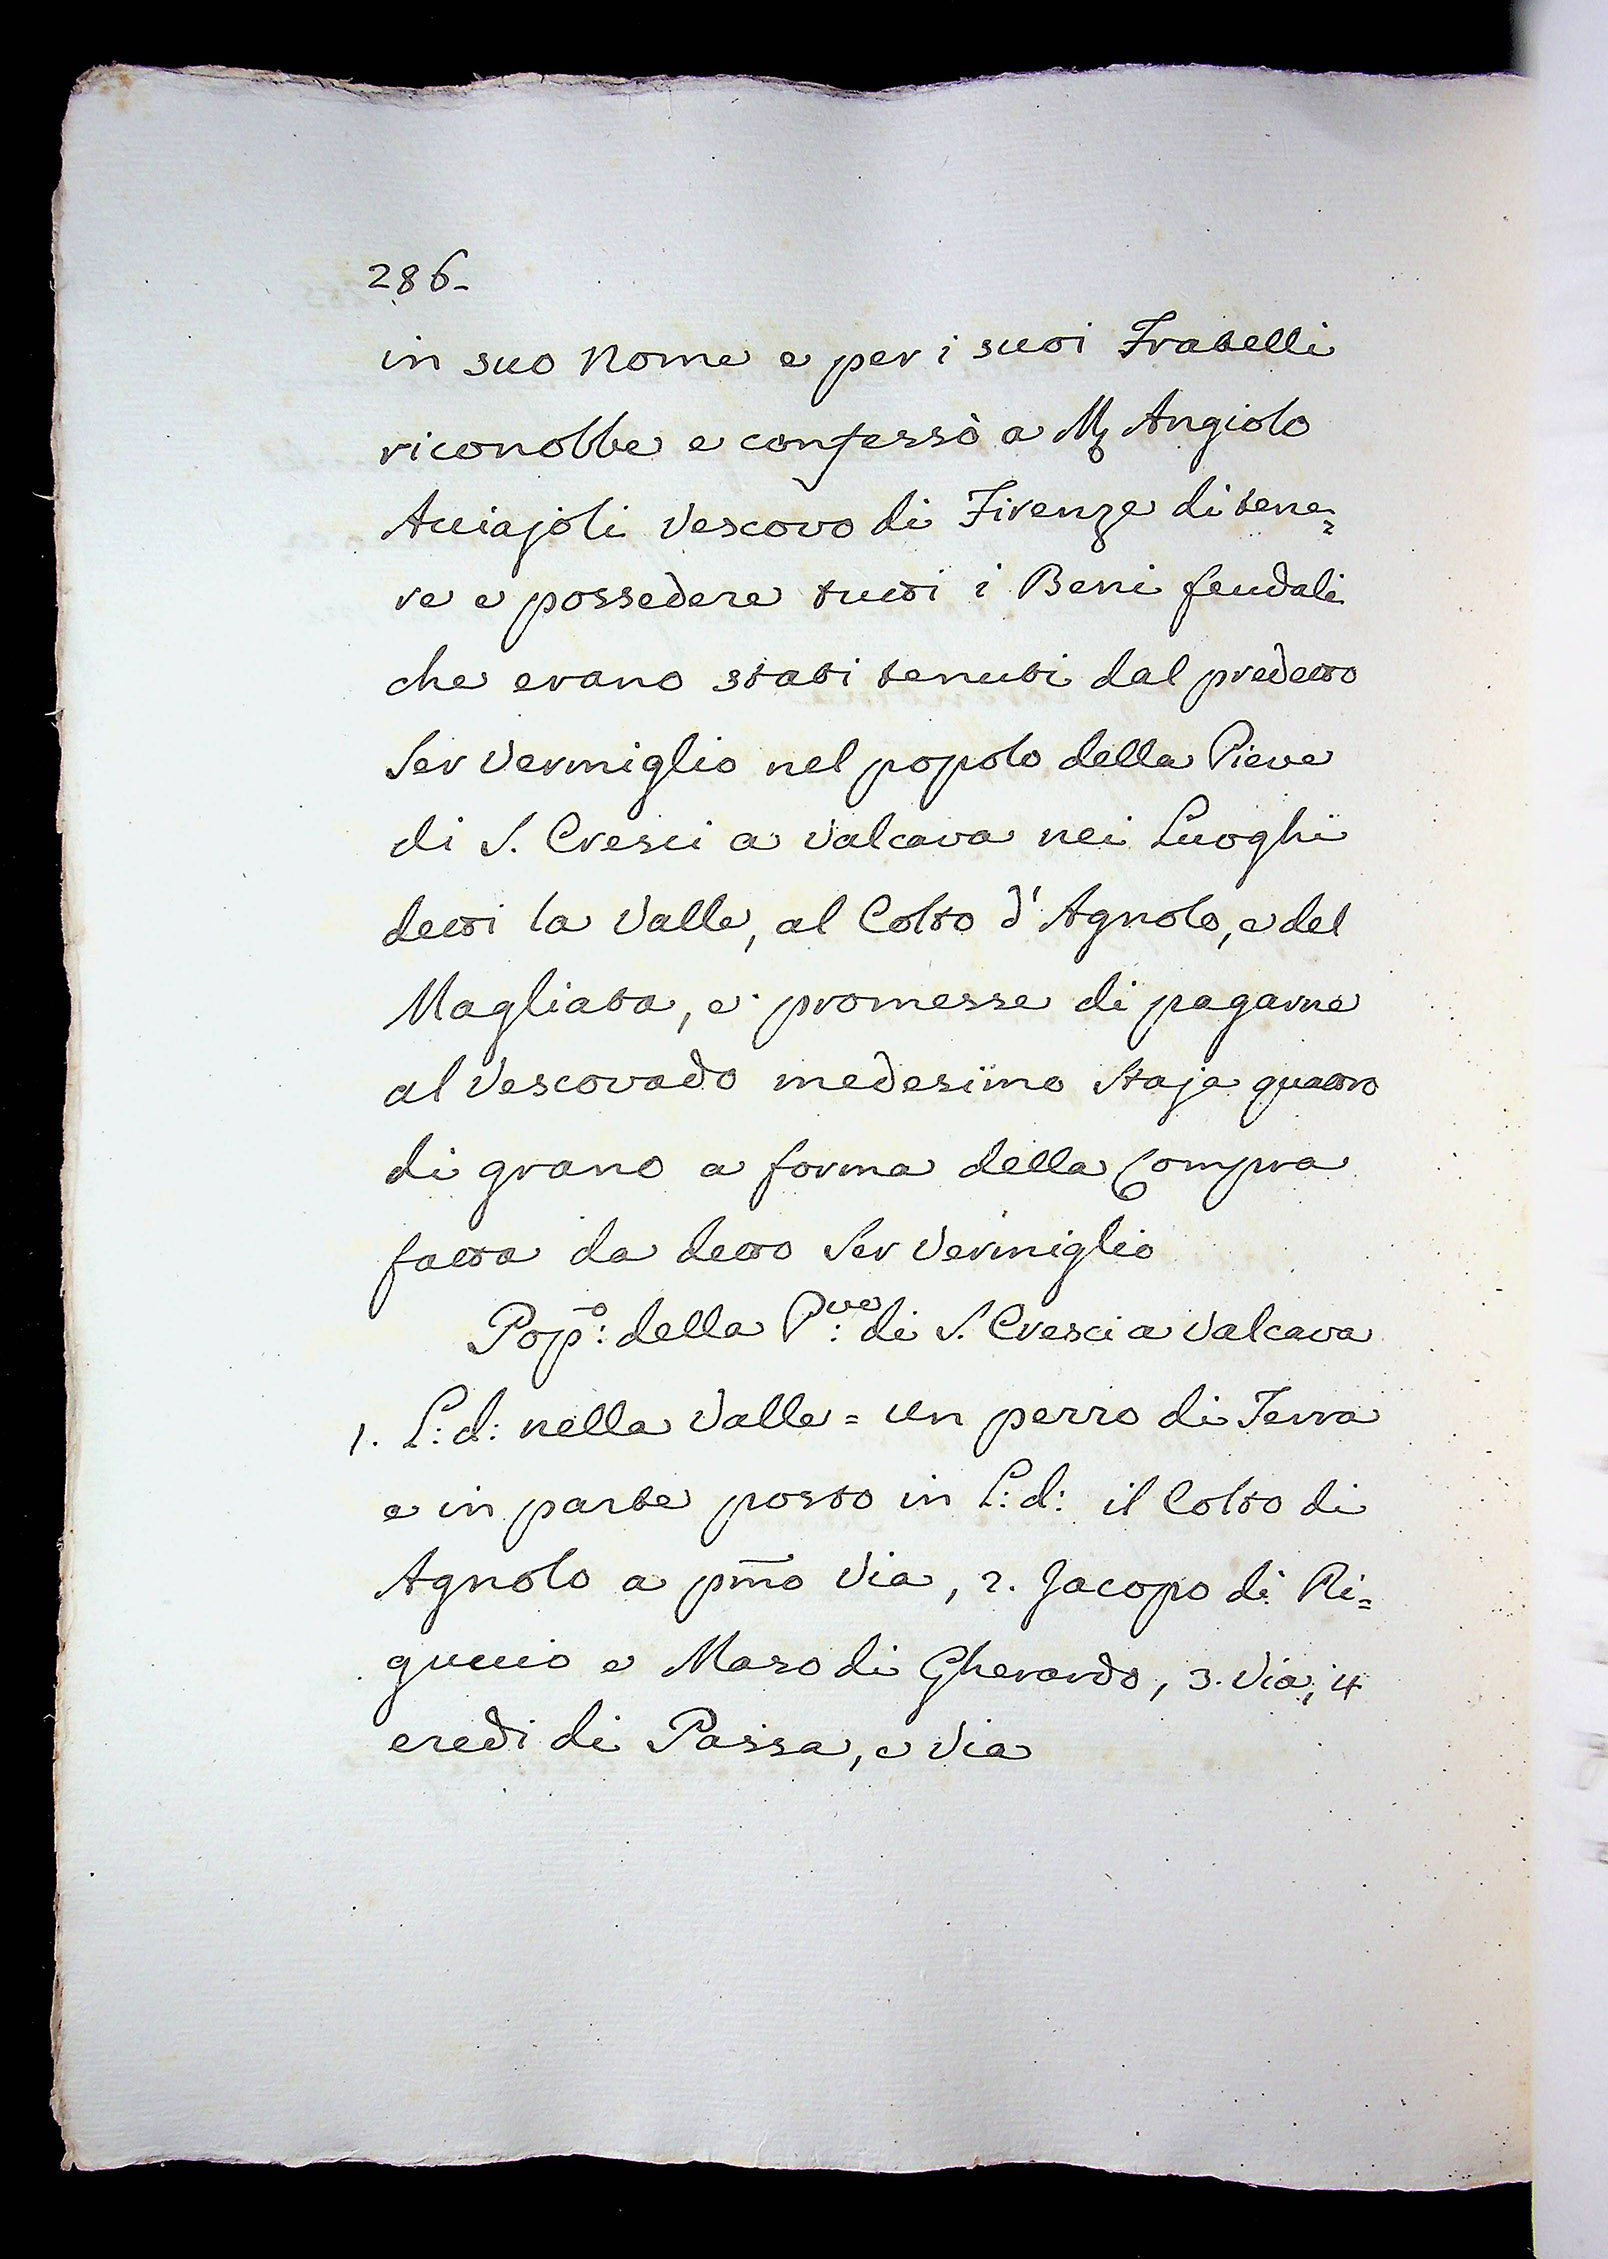 286-
in suo Nome e per i suoi Fratelli
riconobbe e confessò a Mʒ Angiolo
Acciajoli Vescovo di Firenze di tene=
re e possedere tutti i Beni feudali
che erano stati tenuti dal predetto
Ser Vermiglio nel popolo della Pieve
di S. Cresci a Valcava nei Luoghi
detti la Valle, al Colto d'Agnolo, e del
Magliata, e promesse di pagarne
al Vescovado medesimo Staja quattro
di grano a forma della Compra
fatta da detto Ser Vermiglio
Pop.º: della P.ve: di S. Cresci a Valcava
1. L: d: nella Valle = un pezzo di Terra
e in parte posto in L: d: il Colto di
Agnolo a pm̄o Via, 2. Jacopo di Ri=
guccio e Maso di Gherardo, 3. Via, 4
eredi di Passa, e Via